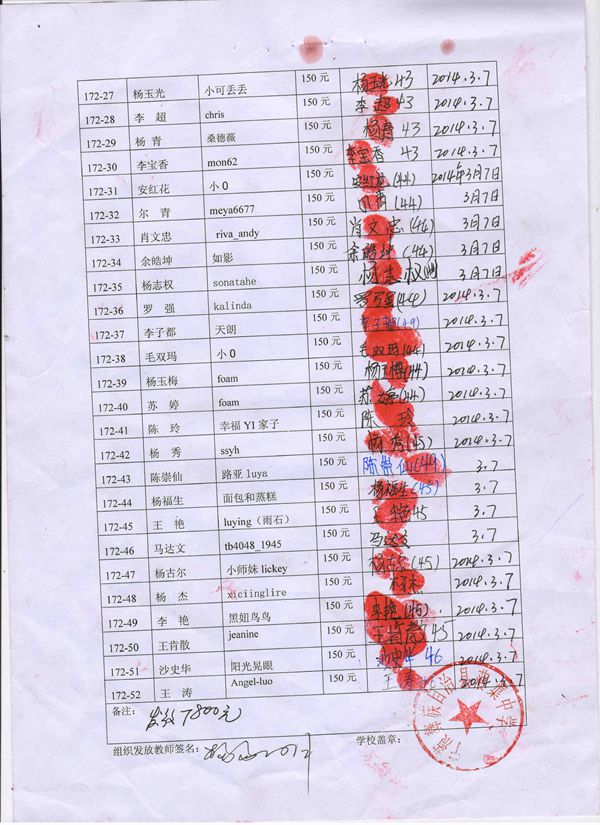 172-27 杨玉光 小可丢丢 150 元 杨玉光 43 2014.3.7
172-28 李 超 chris 150 元 李超 43 2014.3.7
172-29 杨 青 桑德薇 150 元 杨青 43 2014.3.7
172-30 李宝香 mon62 150 元 李宝香 43 2014.3.7
172-31 安红花 小 0 150 元 安红花(44) 2014年3月7日
172-32 尔 青 meya6677 150 元 青(44) 3月7日
172-33 肖文忠 riva_andy 150 元 肖文忠(44) 3月7日
172-34 余皓坤 如影 150 元 余皓坤(44) 3月7日
172-35 杨志权 sonatahe 150 元 杨志权 3月7日
172-36 罗 强 kalinda 150 元 (44) 2014.3.7
172-37 李子都 天朗 150 元 (49) 2014.3.7
172-38 毛双玛 小 0 150 元 毛双玛(44) 2014.3.7
172-39 杨玉梅 foam 150 元 杨玉梅(44) 2014.3.7
172-40 苏 婷 foam 150 元 苏婷(44) 2014.3.7
172-41 陈 玲 幸福 YI 家子 150 元 陈 玲 2014.3.7
172-42 杨 秀 ssyh 150 元 杨秀(45) 2014.3.7
172-43 陈崇仙 路亚 luya 150 元 陈崇仙(49) 3.7
172-44 杨福生 面包和蒸糕 150 元 杨福生(45) 3.7
172-45 王 艳 luying（雨石） 150 元 王艳45 3.7
172-46 马达文 tb4048_1945 150 元 马达文 3.7
172-47 杨古尔 小师妹 lickey 150 元 杨古尔(45) 2014.3.7
172-48 杨 杰 xiciinglire 150 元 杨杰 2014.3.7
172-49 李 艳 黑妞鸟鸟 150 元 李艳(45) 2014.3.7
172-50 王肯散 jeanine 150 元 王肯散45 2014.3.7
172-51 沙史华 阳光晃眼 150 元 46 2014.3.7
172-52 王 涛 Angel-luo 150 元 王 2014.3.7
备注： 发放7800元
组织发放教师签名： 学校盖章：
彝族自治县 中学